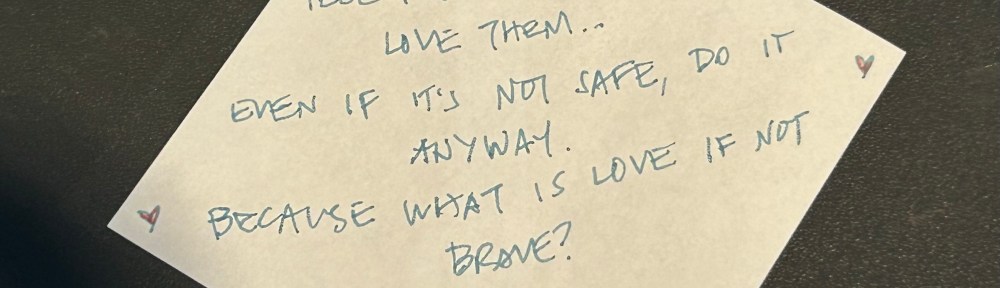 LOVE THEM...
EVEN IF IT'S NOT SAFE, DO IT
ANYWAY.
BECAUSE WHAT IS LOVE IF NOT
BRAVE?